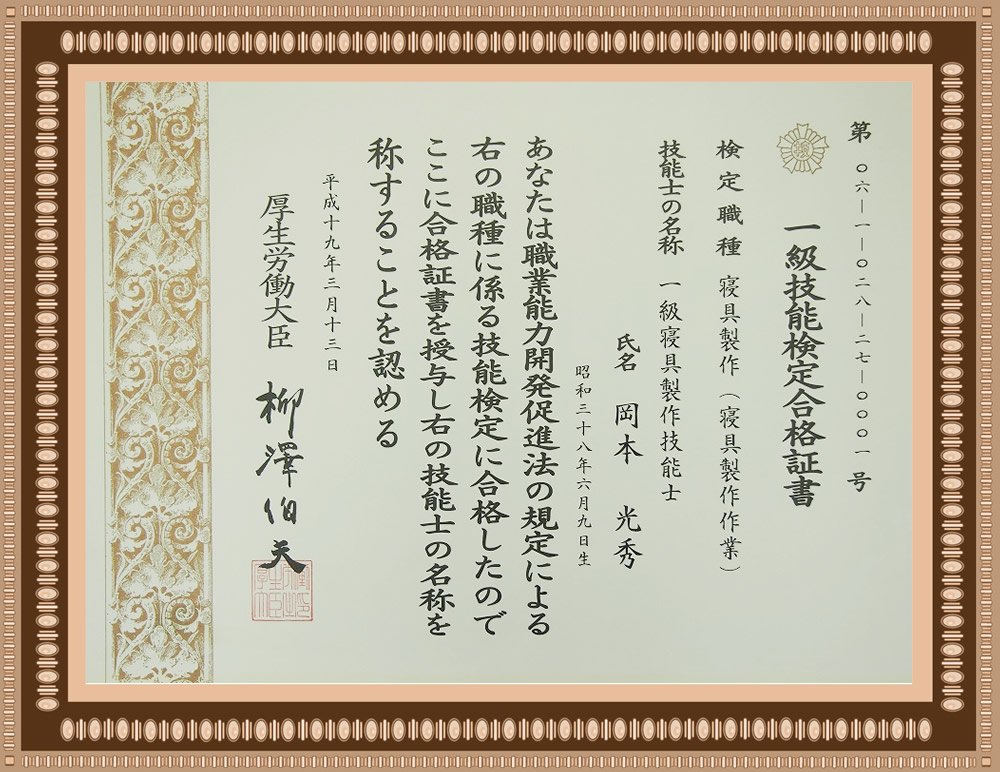 第〇六―一―〇二八―二七―〇〇〇一号
一級技能検定合格証書
検定職種 寝具製作（寝具製作作業）
技能士の名称 一級寝具製作技能士
氏名 岡本 光秀
昭和三十八年六月九日生
あなたは職業能力開発促進法の規定による
右の職種に係る技能検定に合格したので
ここに合格証書を授与し右の技能士の名称を
称することを認める
平成十九年三月十三日
厚生労働大臣 柳澤伯夫